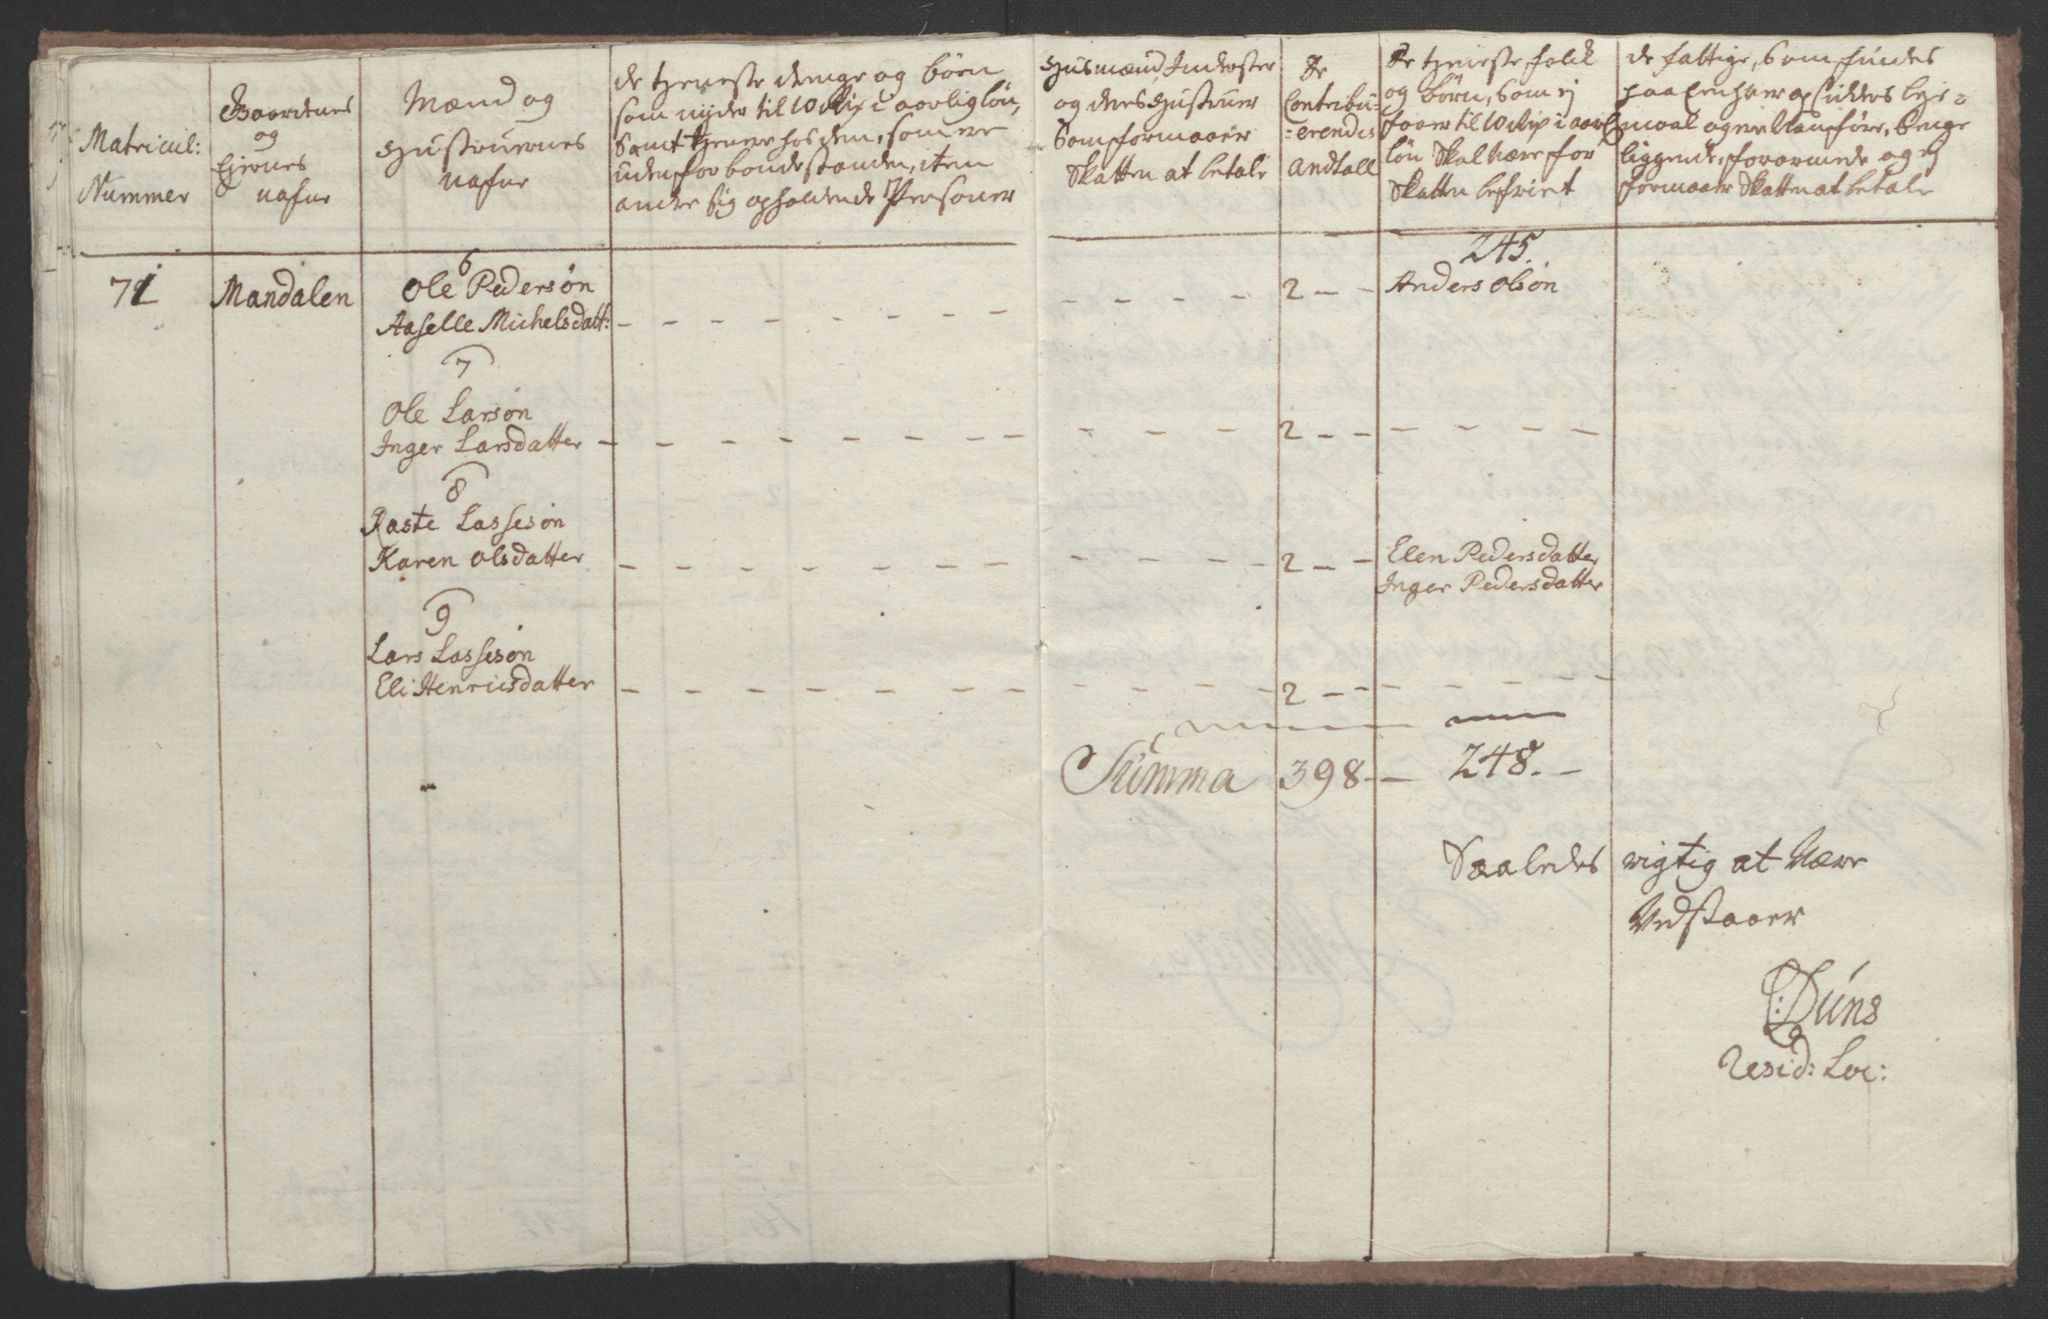 Matricul:
Nummer
Gaardenes
og
Ejernes
nafne
Mænd og
Hustruernes
nafne
de tieneste drenge og børn
som nyder til 10 i aarlig løn,
Samt tiener hos dem, som ere
uden for bondestanden, item
andre sig opholdende Personer
Huusmænd Inderster
og deres Hustruer
Som formaaer
Skatten at betale
De
Contribu-
=erendes
Andtall
De tieneste folk
og børn, som ej
faaer til 10 i aarl
løn Skal være for
Skatten befriet
de fattige, Som findes
paa Enhver opsidders leje=
maal og ere Vanføre, Senge
liggende, forarmede og ej
formaaer Skatten at betale
245.
71 Mandalen
6
Ole Pedersøn
Aaselle Michelsdatt: - - - 2 - - Anders Olsøn
7
Ole Larsøn
Inger Larsdatter - - - 2 - - -
8
Raste Lassesøn
Karen Olsdatter - - - 2 - - Elen Pedersdatter
Inger Pedersdatter
9
Lars Lassesøn
Eli Henricsdatter - - - 2 - - -
Summa 398. - 248. -
Saaledes rigtig at være
Vedstaaer
C: Düns
resid: Loc: